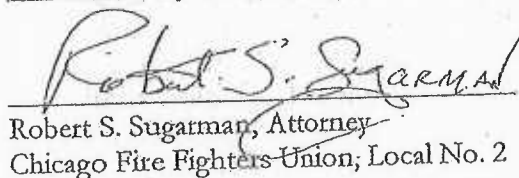 Robert S. Sugarman
Robert S. Sugarman, Attorney
Chicago Fire Fighters Union, Local No. 2